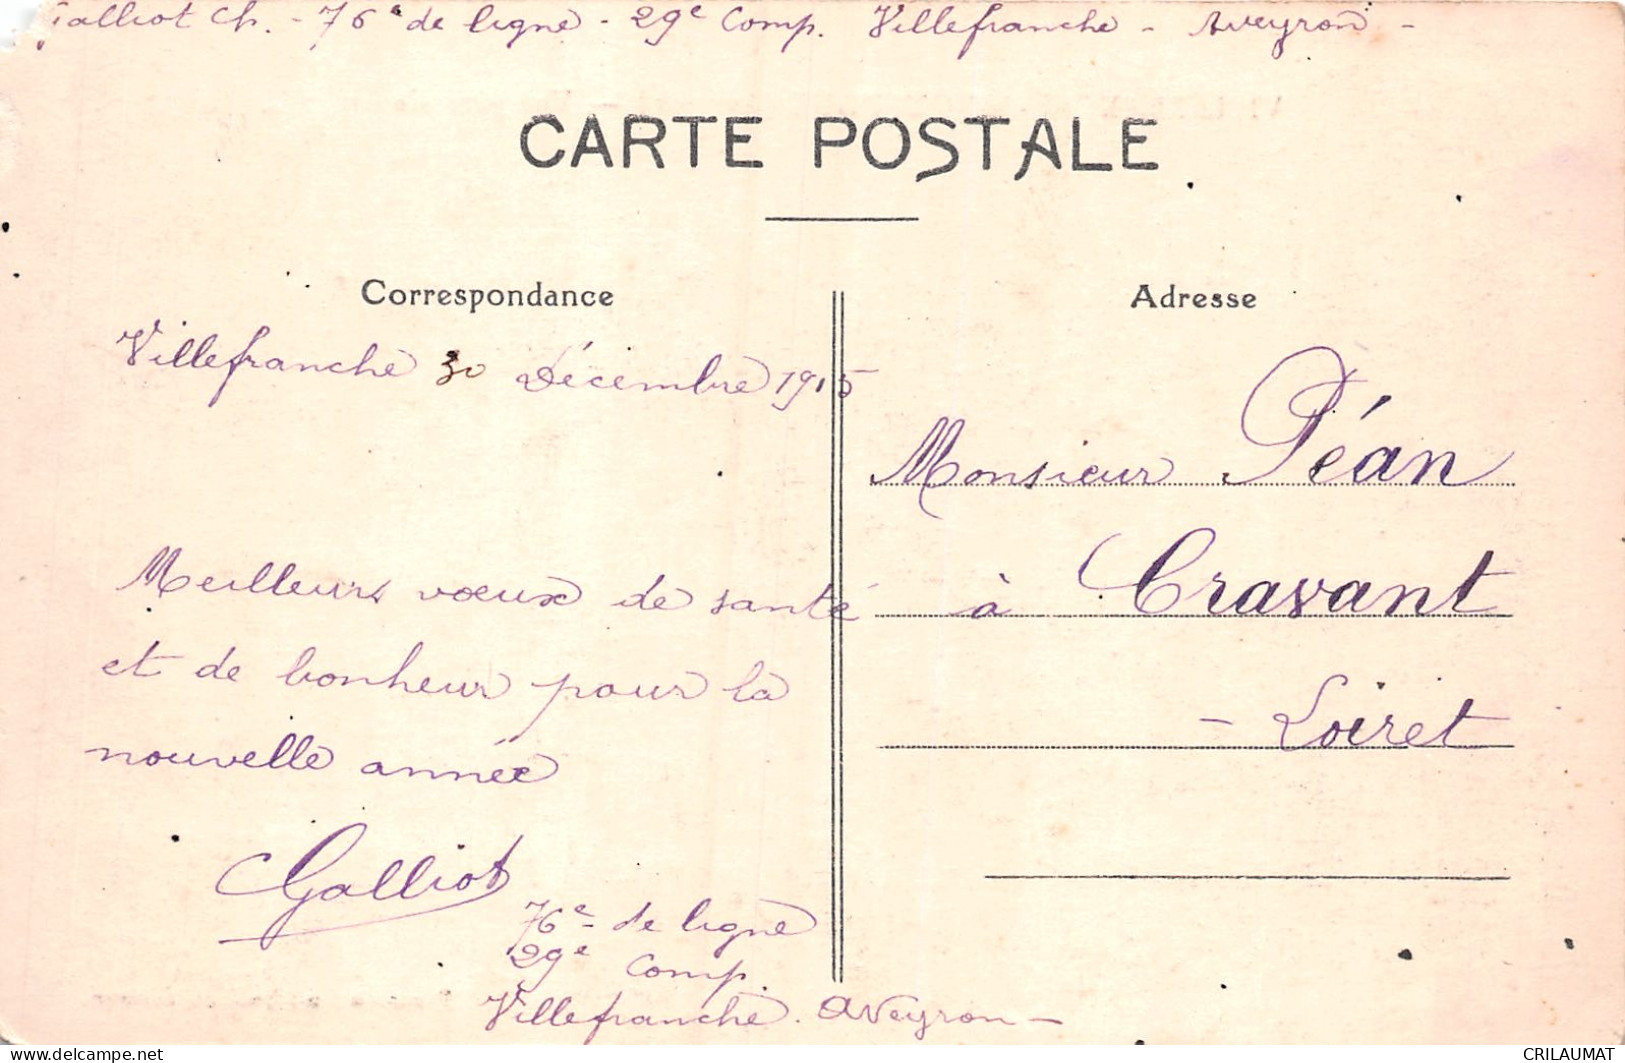 Galliot Ch. - 76e de ligne - 29e Comp. Villefranche - Aveyron -
CARTE POSTALE
Correspondance
Villefranche 30 Décembre 1915
Meilleurs vœux de santé
et de bonheur pour la
nouvelle année
Galliot
76e de ligne
29e Comp.
Villefranche. Aveyron -
Adresse
Monsieur Péan
à Cravant
- Loiret
CRILAUMAT